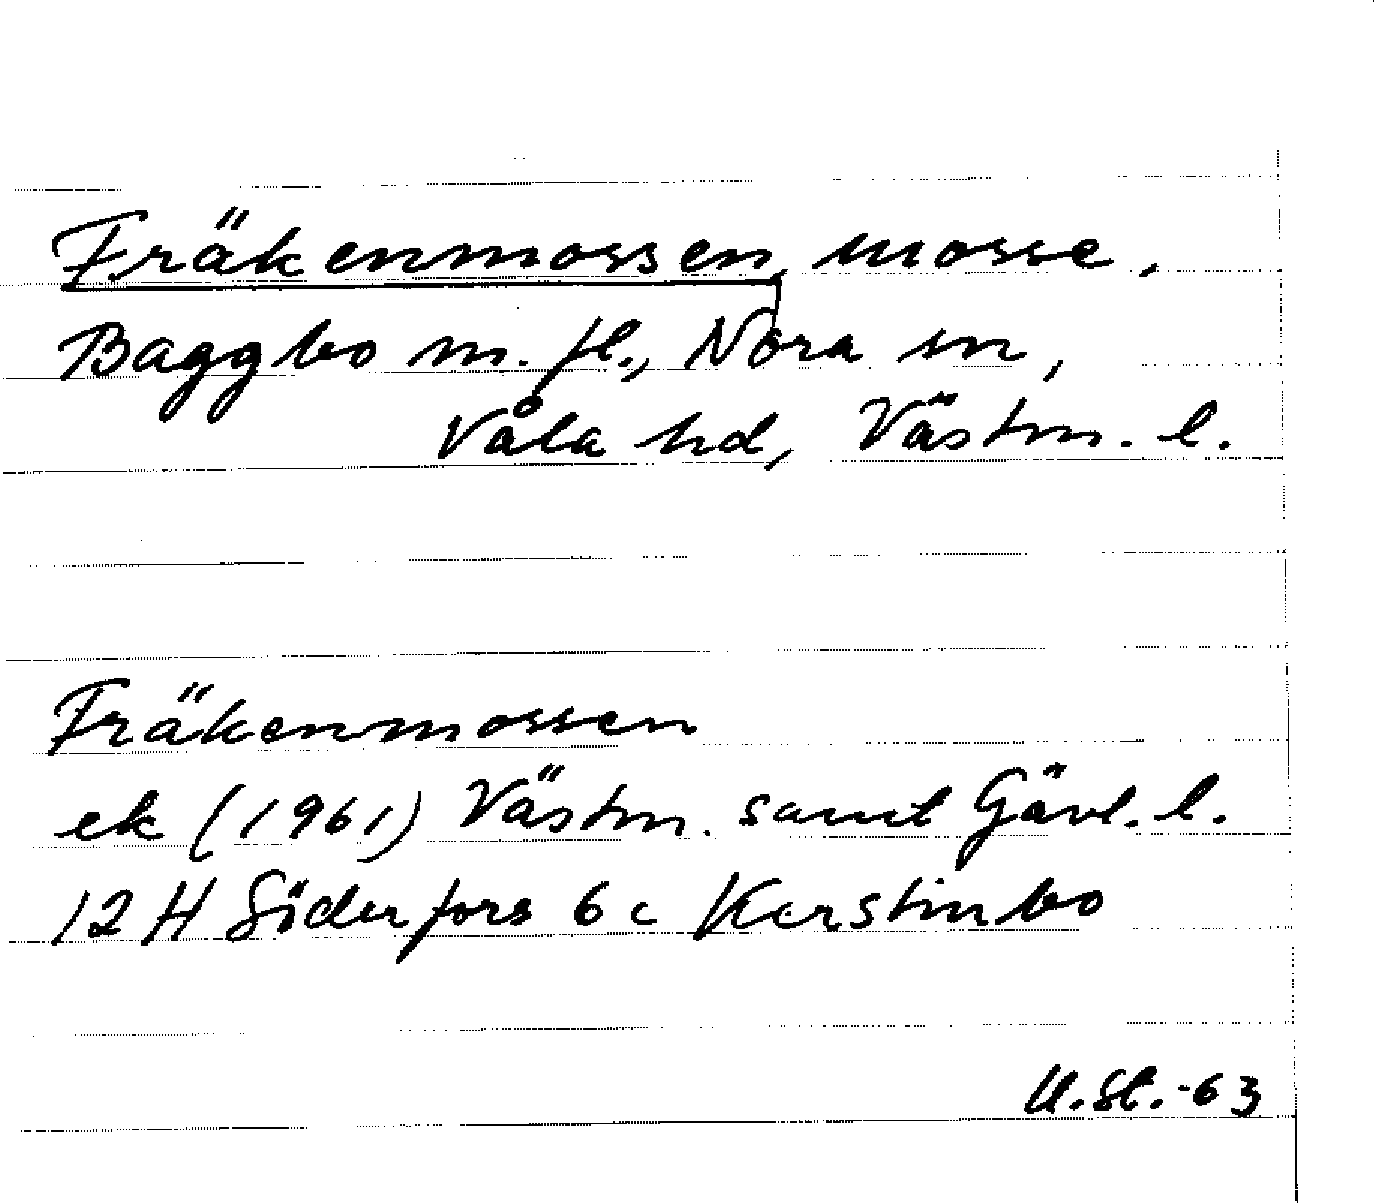 Fräkenmossen, mosse,
Baggbo m. fl., Nora sn,
Våla hd, Västm. l.
Fräkenmossen
ek (1961) Västm. samt Gävl. l.
12 H Söderfors 6 c Kerstinbo
U. St. -63